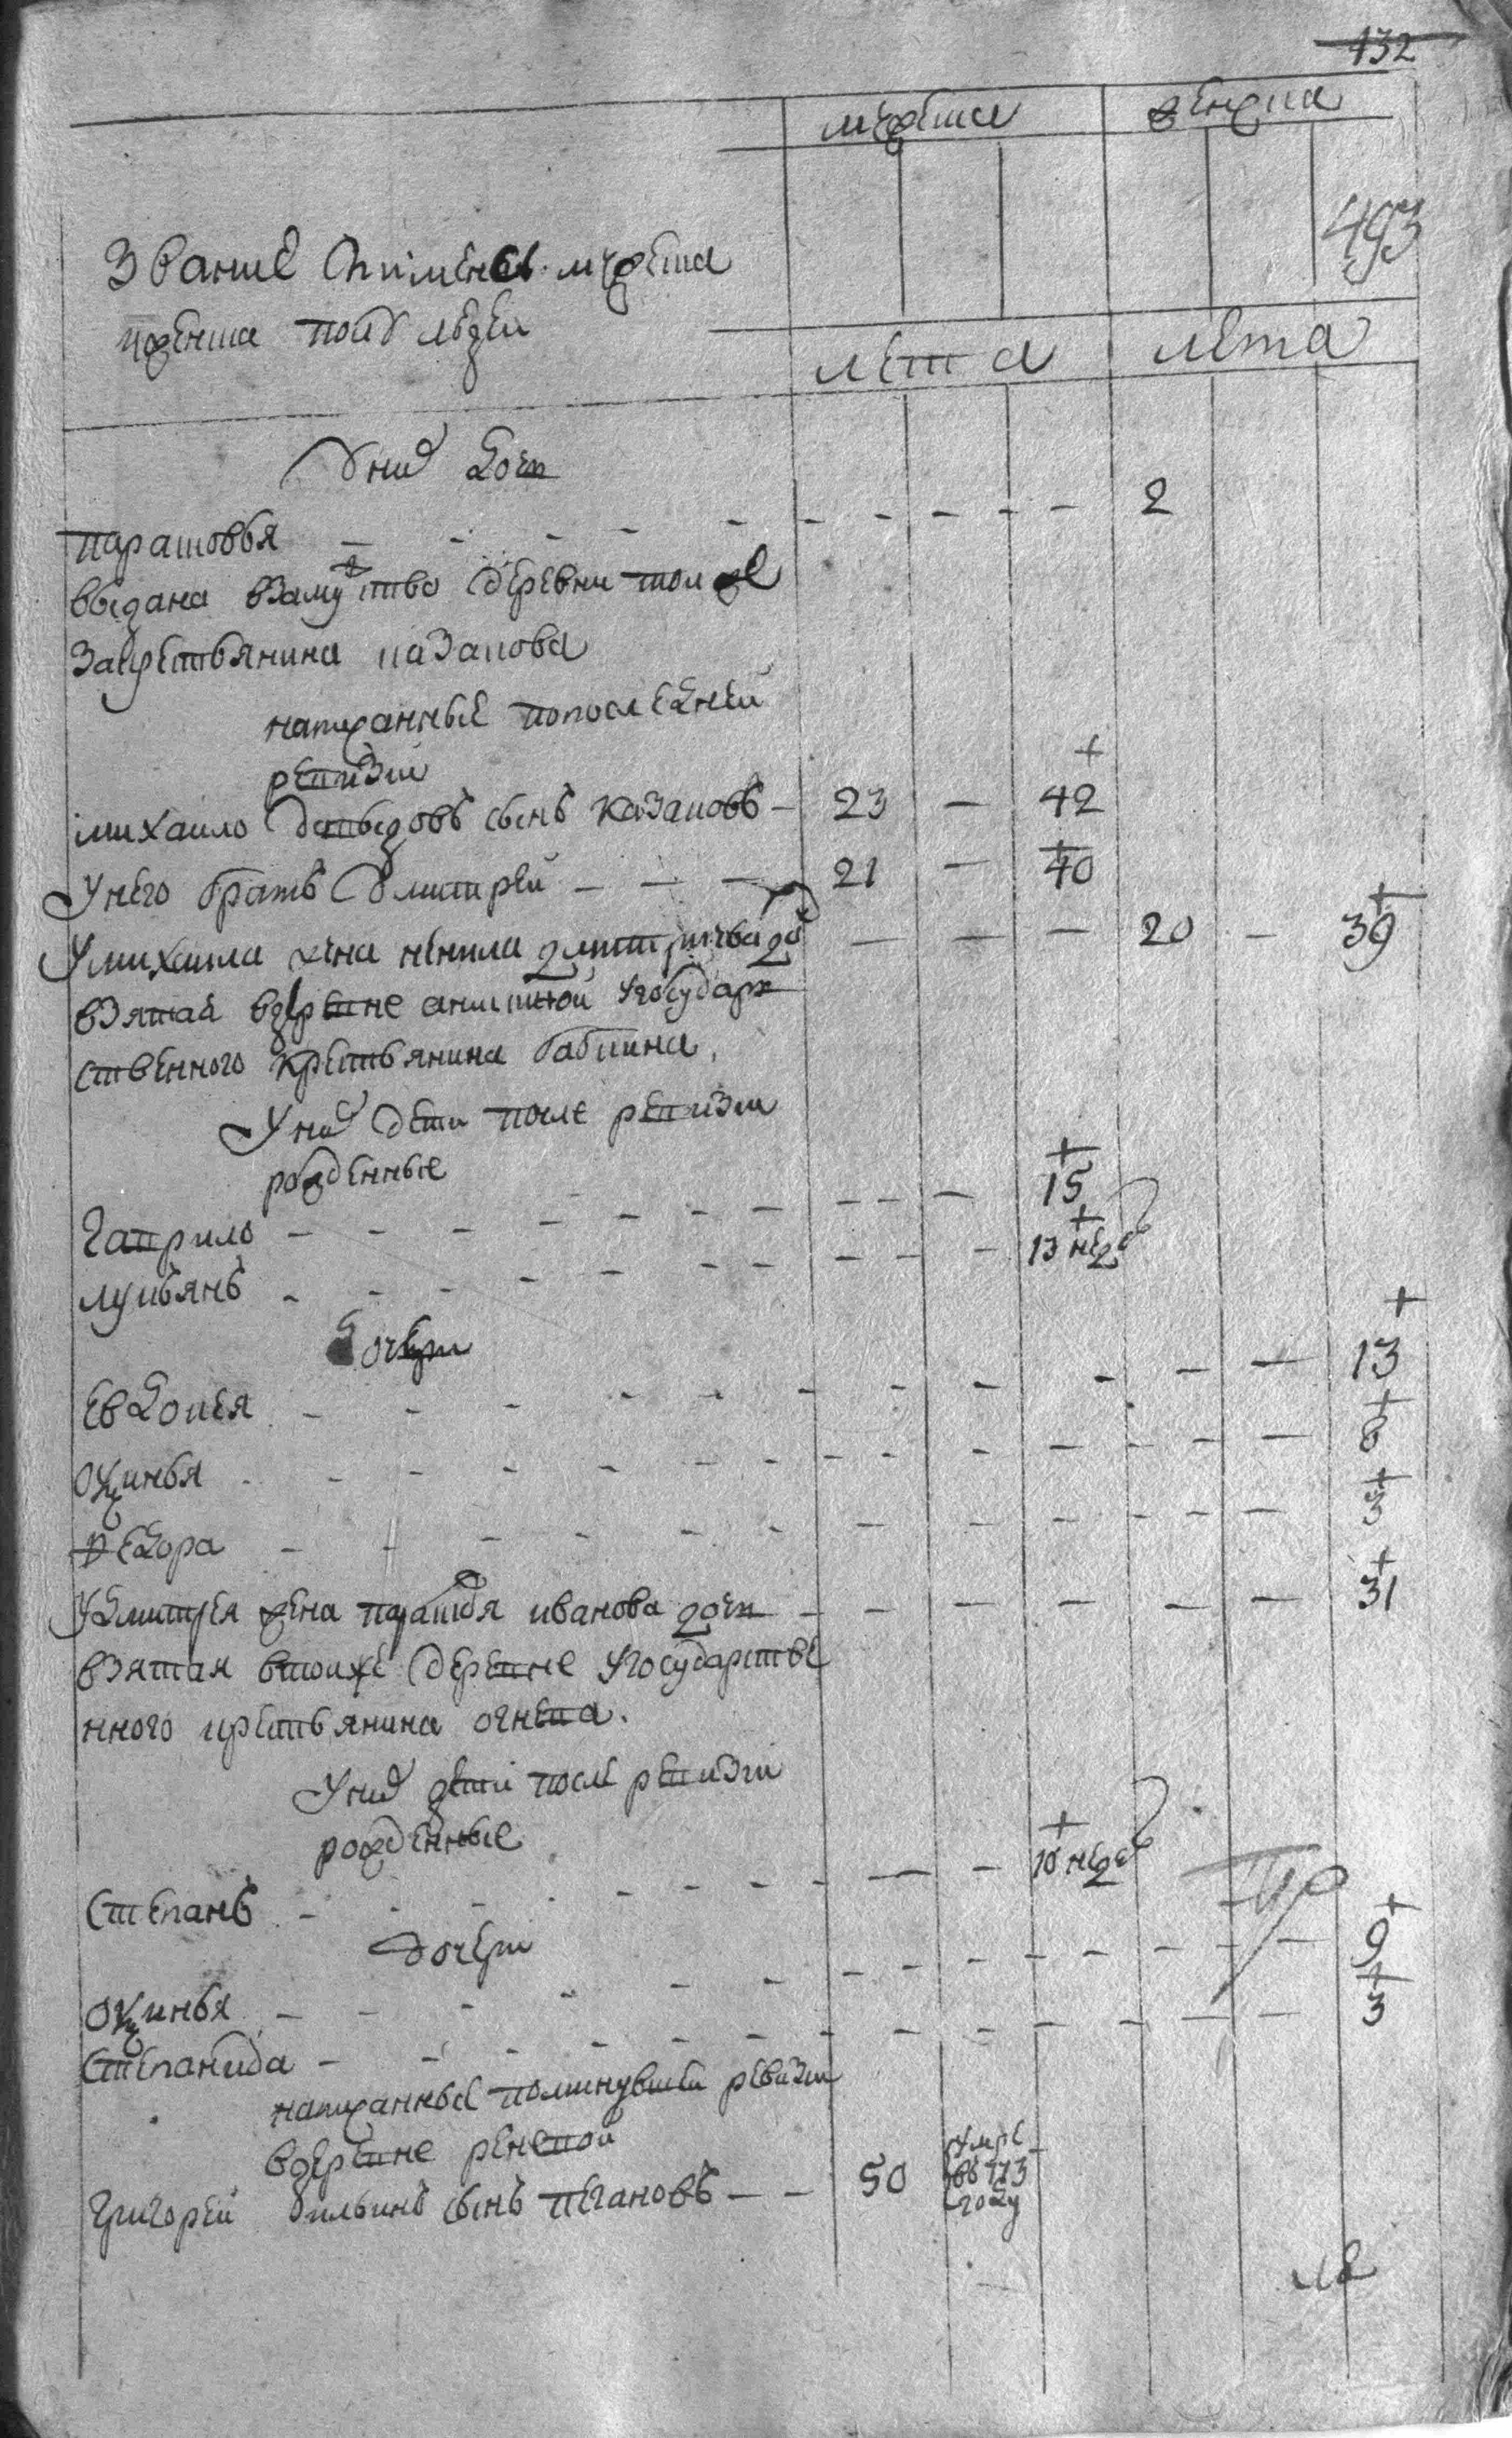 432
мужеска женска
493
звание имена мужеска
и женска полу людей
лета лета
У них дочь
парасковья 2
выдана взамужство деревни той же
за крестьянина казакова
написанные по последней
ревизии
михайло давыдовъ сынъ казаковъ 23 42
У него братъ дмитрей 21 40
У михаила жена ненила дмитриева до 20 39
взятая в деревне государ
ственного крестьянина бабкина
У них дети после ревизии
рожденные
гаврило 15
лукьянъ 13 нед
дочери
евдокея 13
оксинья 8
федора 3
У дмитрея жена парасковья иванова дочь 31
взятая в той же деревне у государстве
нного крестьянина огнева.
У них дети после ревизии
рожденные
степанъ 10 нед
дочери
оксинья 9
степанида 3
написанные по минувшей ревизии
в деревне реневой
григорей ильинъ сынъ пегановъ 50 умре
въ 773
году